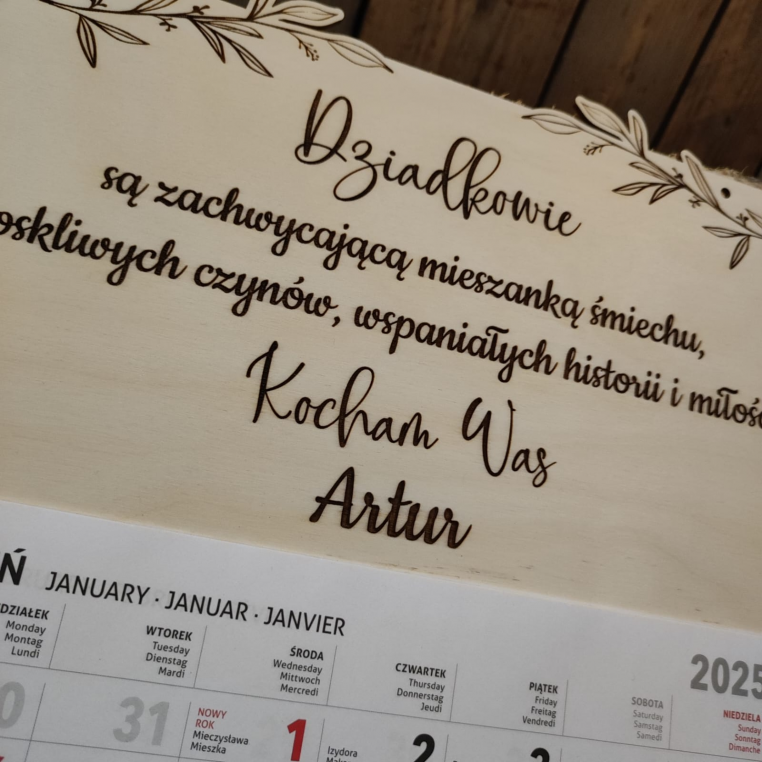 Dziadkowie
są zachwycającą mieszanką śmiechu,
czynów, wspaniałych historii i
Kocham Was
Artur
JANUARY · JANUAR · JANVIER
2025
Monday
Montag
Lundi
WTOREK
Tuesday
Dienstag
Mardi
ŚRODA
Wednesday
Mittwoch
Mercredi
CZWARTEK
Thursday
Donnerstag
Jeudi
PIĄTEK
Friday
Freitag
Vendredi
SOBOTA
Saturday
Samstag
Samedi
NIEDZIELA
Sunday
Sonntag
Dimanche
31
NOWY
ROK
Mieczysława
Mieszka
1
Izydora
2